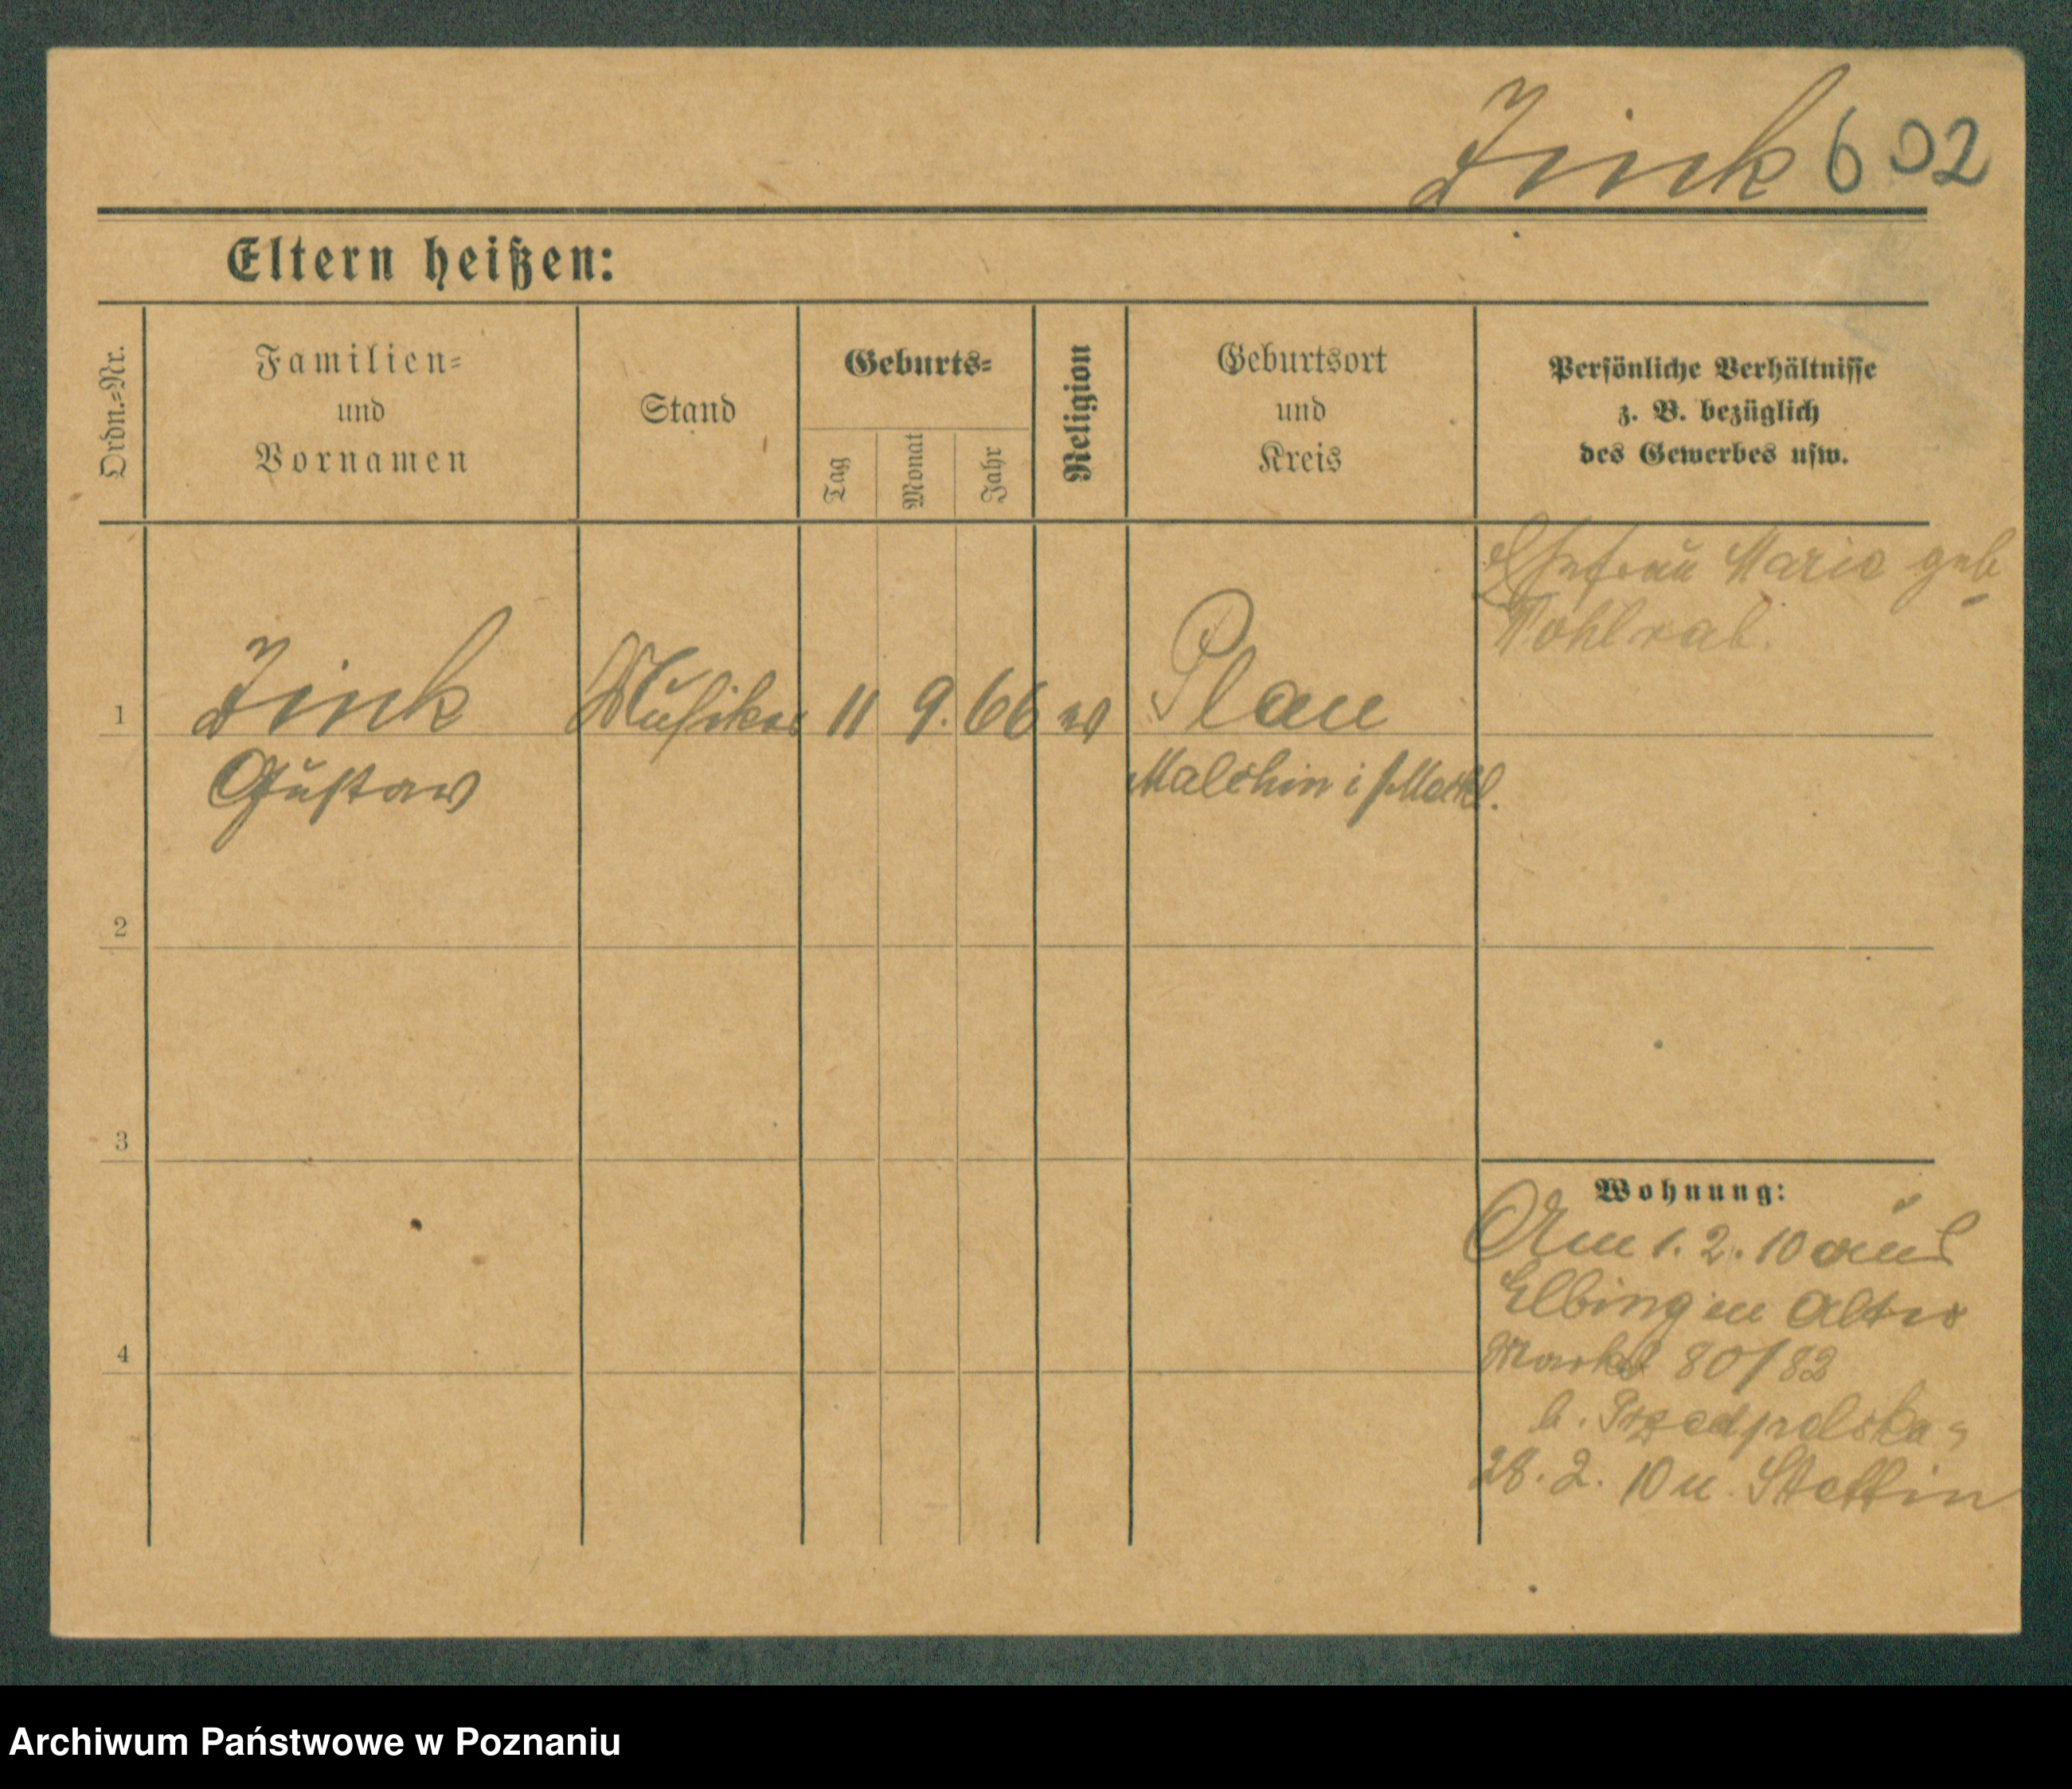 Zink 602
Eltern heißen:
Ordn.-Nr.
Familien-
und
Vornamen
Stand
Geburts-
Tag
Monat
Jahr
Religion
Geburtsort
und
Kreis
Persönliche Verhältnisse
z. B. bezüglich
des Gewerbes usw.
Ehefrau Marie geb
1 Zink Musiker 11 9. 66 ev Plau
Gustav Malchin i/Meckl.
2
3
4
Wohnung:
Am 1. 2. 10 aus
Elbing in Alter
Markt 80/82
b. Przedpelska
28. 2. 10 n. Stettin
Archiwum Państwowe w Poznaniu